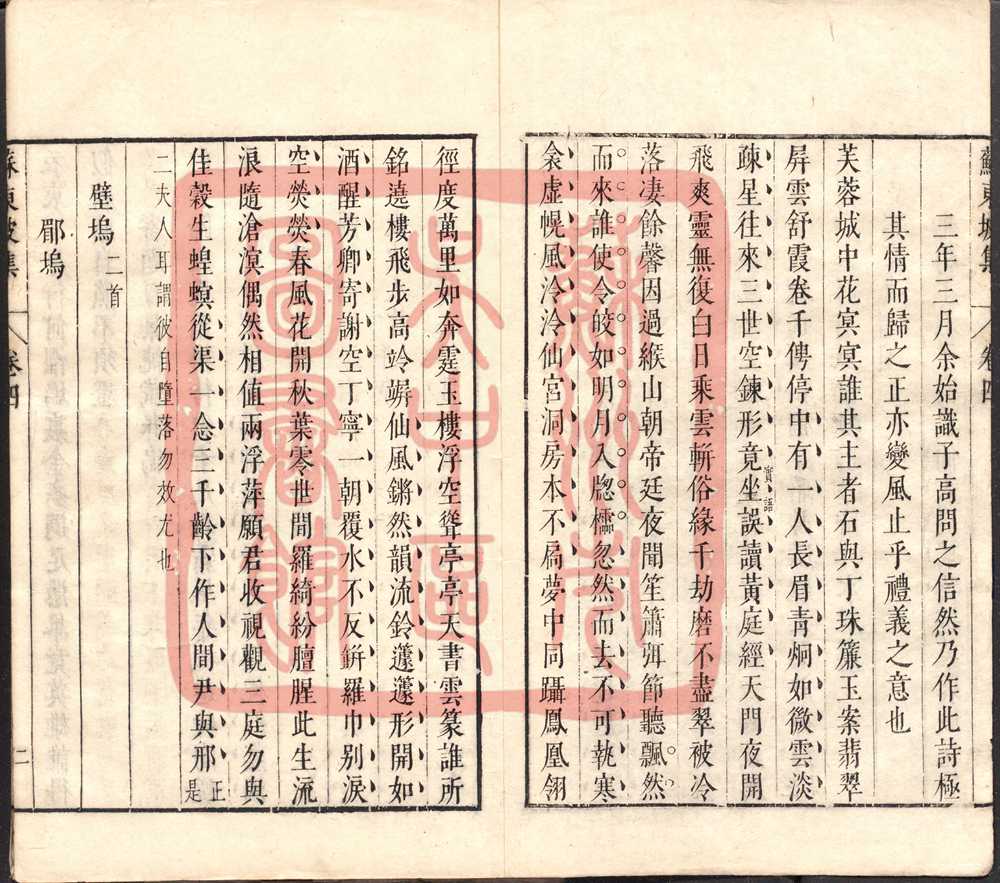 蘇東坡集 卷四
三年三月余始識子高問之信然乃作此詩極
其情而歸之正亦變風止乎禮義之意也
芙蓉城中花冥冥誰其主者石與丁珠簾玉案翡翠
屏雲舒霞卷千俜停中有一人長眉青炯如微雲淡
疎星往來三世空鍊形竟坐誤讀黃庭經天門夜開
實語
飛爽靈無復白日乘雲軿俗緣千劫磨不盡翠被冷
落凄餘馨因過緱山朝帝廷夜聞笙簫弭節聽飄然
而來誰使令皎如明月入牕櫺忽然而去不可執寒
衾虛幌風泠泠仙宮洞房本不扃夢中同躡鳳凰翎
徑度萬里如奔霆玉樓浮空聳亭亭天書雲篆誰所
銘遶樓飛步高竛竮仙風鏘然韻流鈴蘧蘧形開如
酒醒芳卿寄謝空丁寧一朝覆水不反缾羅巾別淚
空熒熒春風花開秋葉零世間羅綺紛膻腥此生流
浪隨滄溟偶然相值兩浮萍願君收視觀三庭勿與
佳穀生蝗螟從渠一念三千齡下作人間尹與邢正是
二夫人耳謂彼自墮落勿效尤也
壁塢二首
郿塢
蘇東坡集 卷四 二
蘇州市
圖書館